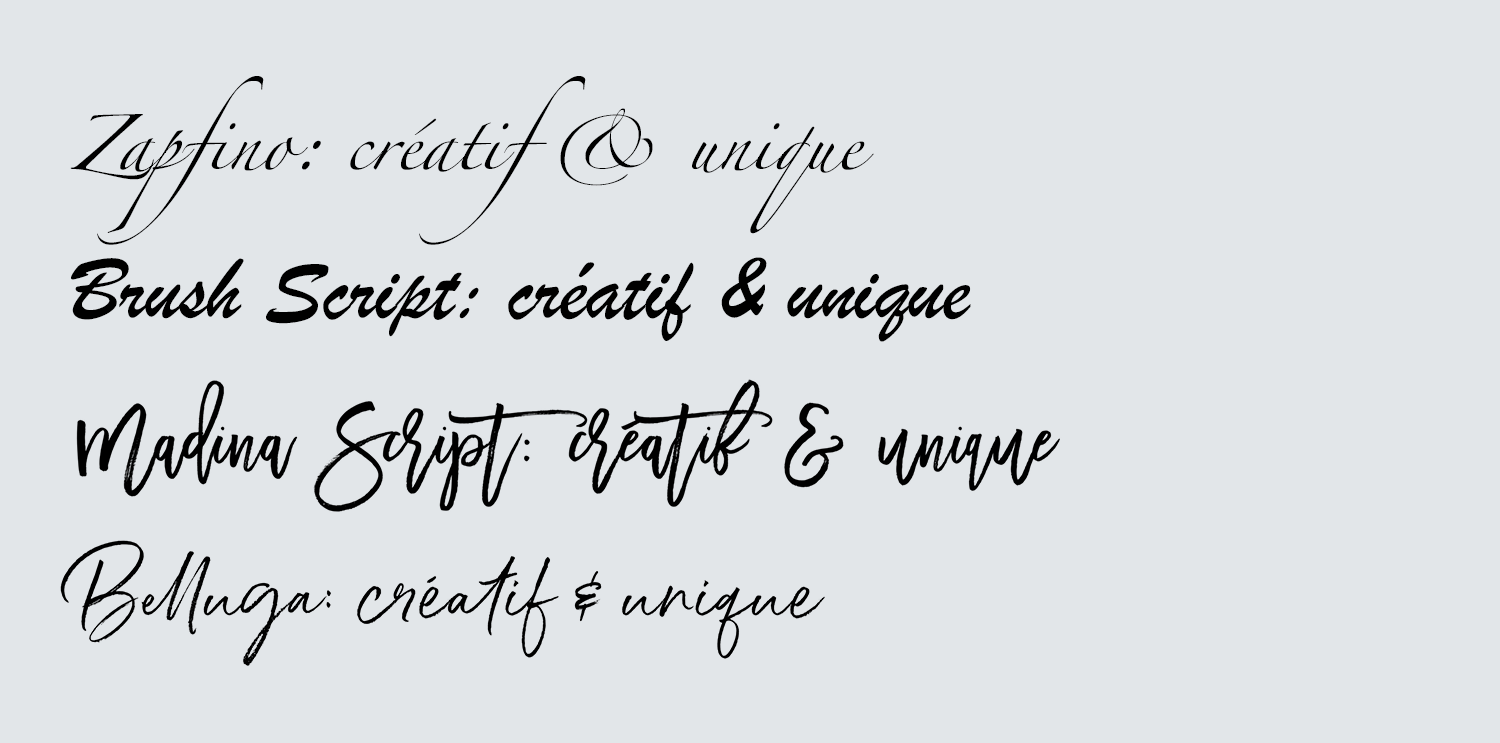 Zapfino: créatif & unique
Brush Script: créatif & unique
Madina Script: créatif & unique
Belluga: créatif & unique